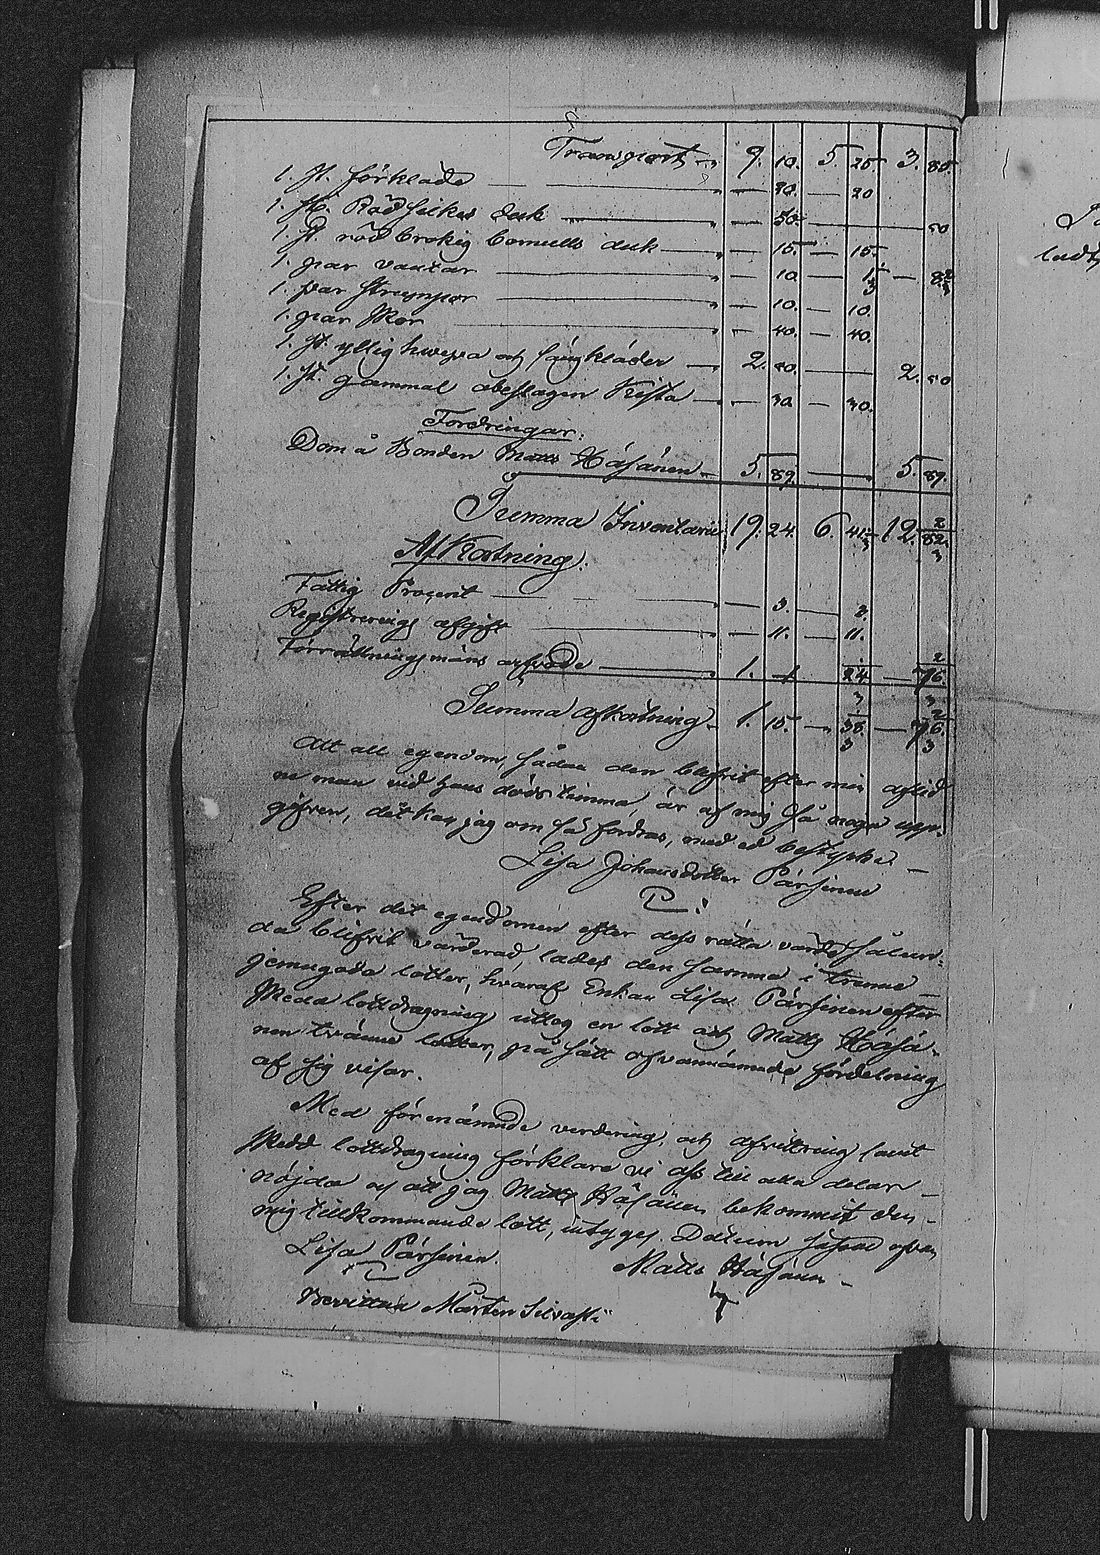 Transport 9. 10. 5. 25. 3. 85.
1. st. förkläde — 20. — 20
1. st. Röd silkes duk — 50. — 50
1. st. röd brokig bomulls duk — 15. — 15.
1. par vantar — 10 — 1 1/3 — 8 2/3
1. par strumpor — 10. — 10.
1. par skor — 40. — 40.
1. st. yllig hwepa och sängkläder — 2. 50. — 2. 50
1. st. gammal obeslagen Kista — 30 — 30.
Fordringar:
Dom å Bonden Matts Håsänen — 5. 89. — 5. 89.
Summa Inventarium 19. 24. 6. 41 1/3 12. 82 2/3
Afkortning:
Fattig Procent — 3. — 3.
Registrerings afgift — 11. — 11.
Förrättningsmäns arfvode — 1. 1 — 24 1/3 — 76 2/3
Summa afkortning 1. 15. — 38 1/3 — 76 2/3
Att all egendom, sådan den blifvit efter min aflid
ne man vid hans döds timma, är af mig så noga upp-
gifven, det kan jag om så fordras, med ed bestyrka. —
Lisa Johansdotter Pärsinen
Efter det egendomen efter dess rätta värde sålun-
da blifvit värderad, lades den samma i trenne
jemngoda lotter, hvaraf Enkan Lisa Pärsinen efter
skedd lottdragning uttog en lott och Matts Håsä-
nen tvänne lotter, på sätt ofvannämnde fördelning
af sig visar.
Med förenämnde värdering, och afvittring samt
skedd lottdragning förklara vi oss till alla delar
nöjda och att jag Matts Håsänen bekommit den
mig tillkommande lott, intyges. Datum som ofvan
Lisa Pärsinen. Matts Håsänen
Bevittna Mårten Silvasti